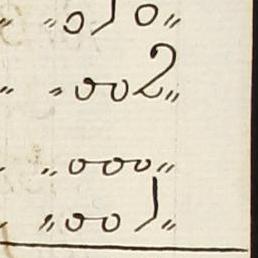 " "010"
" "002"
" "000"
" "001"